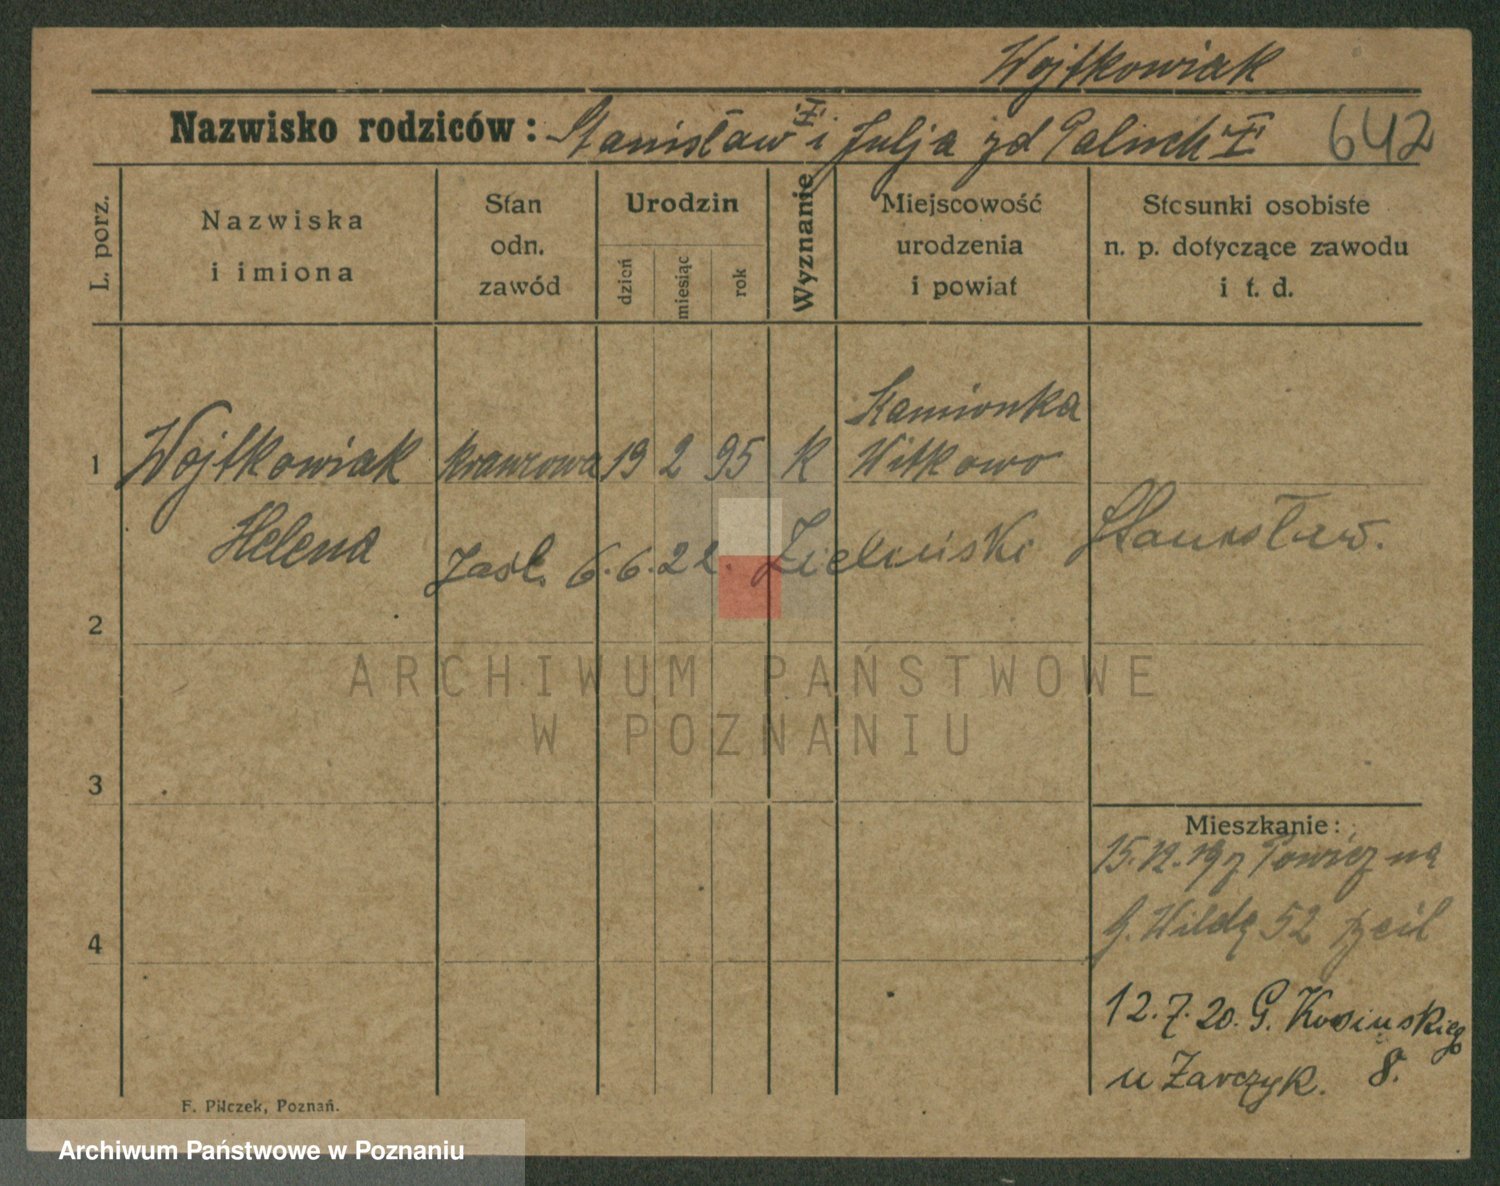 Wojtkowiak
Nazwisko rodziców: Stanisław i Julja zd Paluch
642
L. porz.
Nazwiska
i imiona
Stan
odn.
zawód
Urodzin
dzień
miesiąc
rok
Wyznanie
Miejscowość
urodzenia
i powiat
Stosunki osobiste
n. p. dotyczące zawodu
i t. d.
Kamionka
1 Wojtkowiak krawcowa 19 2 95 k Witkowo
Helena
Zaśl. 6.6.22. Zieliński Stanisław.
2
ARCHIWUM PAŃSTWOWE
W POZNANIU
3
Mieszkanie:
15.12.19 z Powicz na
4
G. Wildę 52
12.7.20. G. Kosinskiego
u Zarczyk. 8.
F. Pilczek, Poznań.
Archiwum Państwowe w Poznaniu